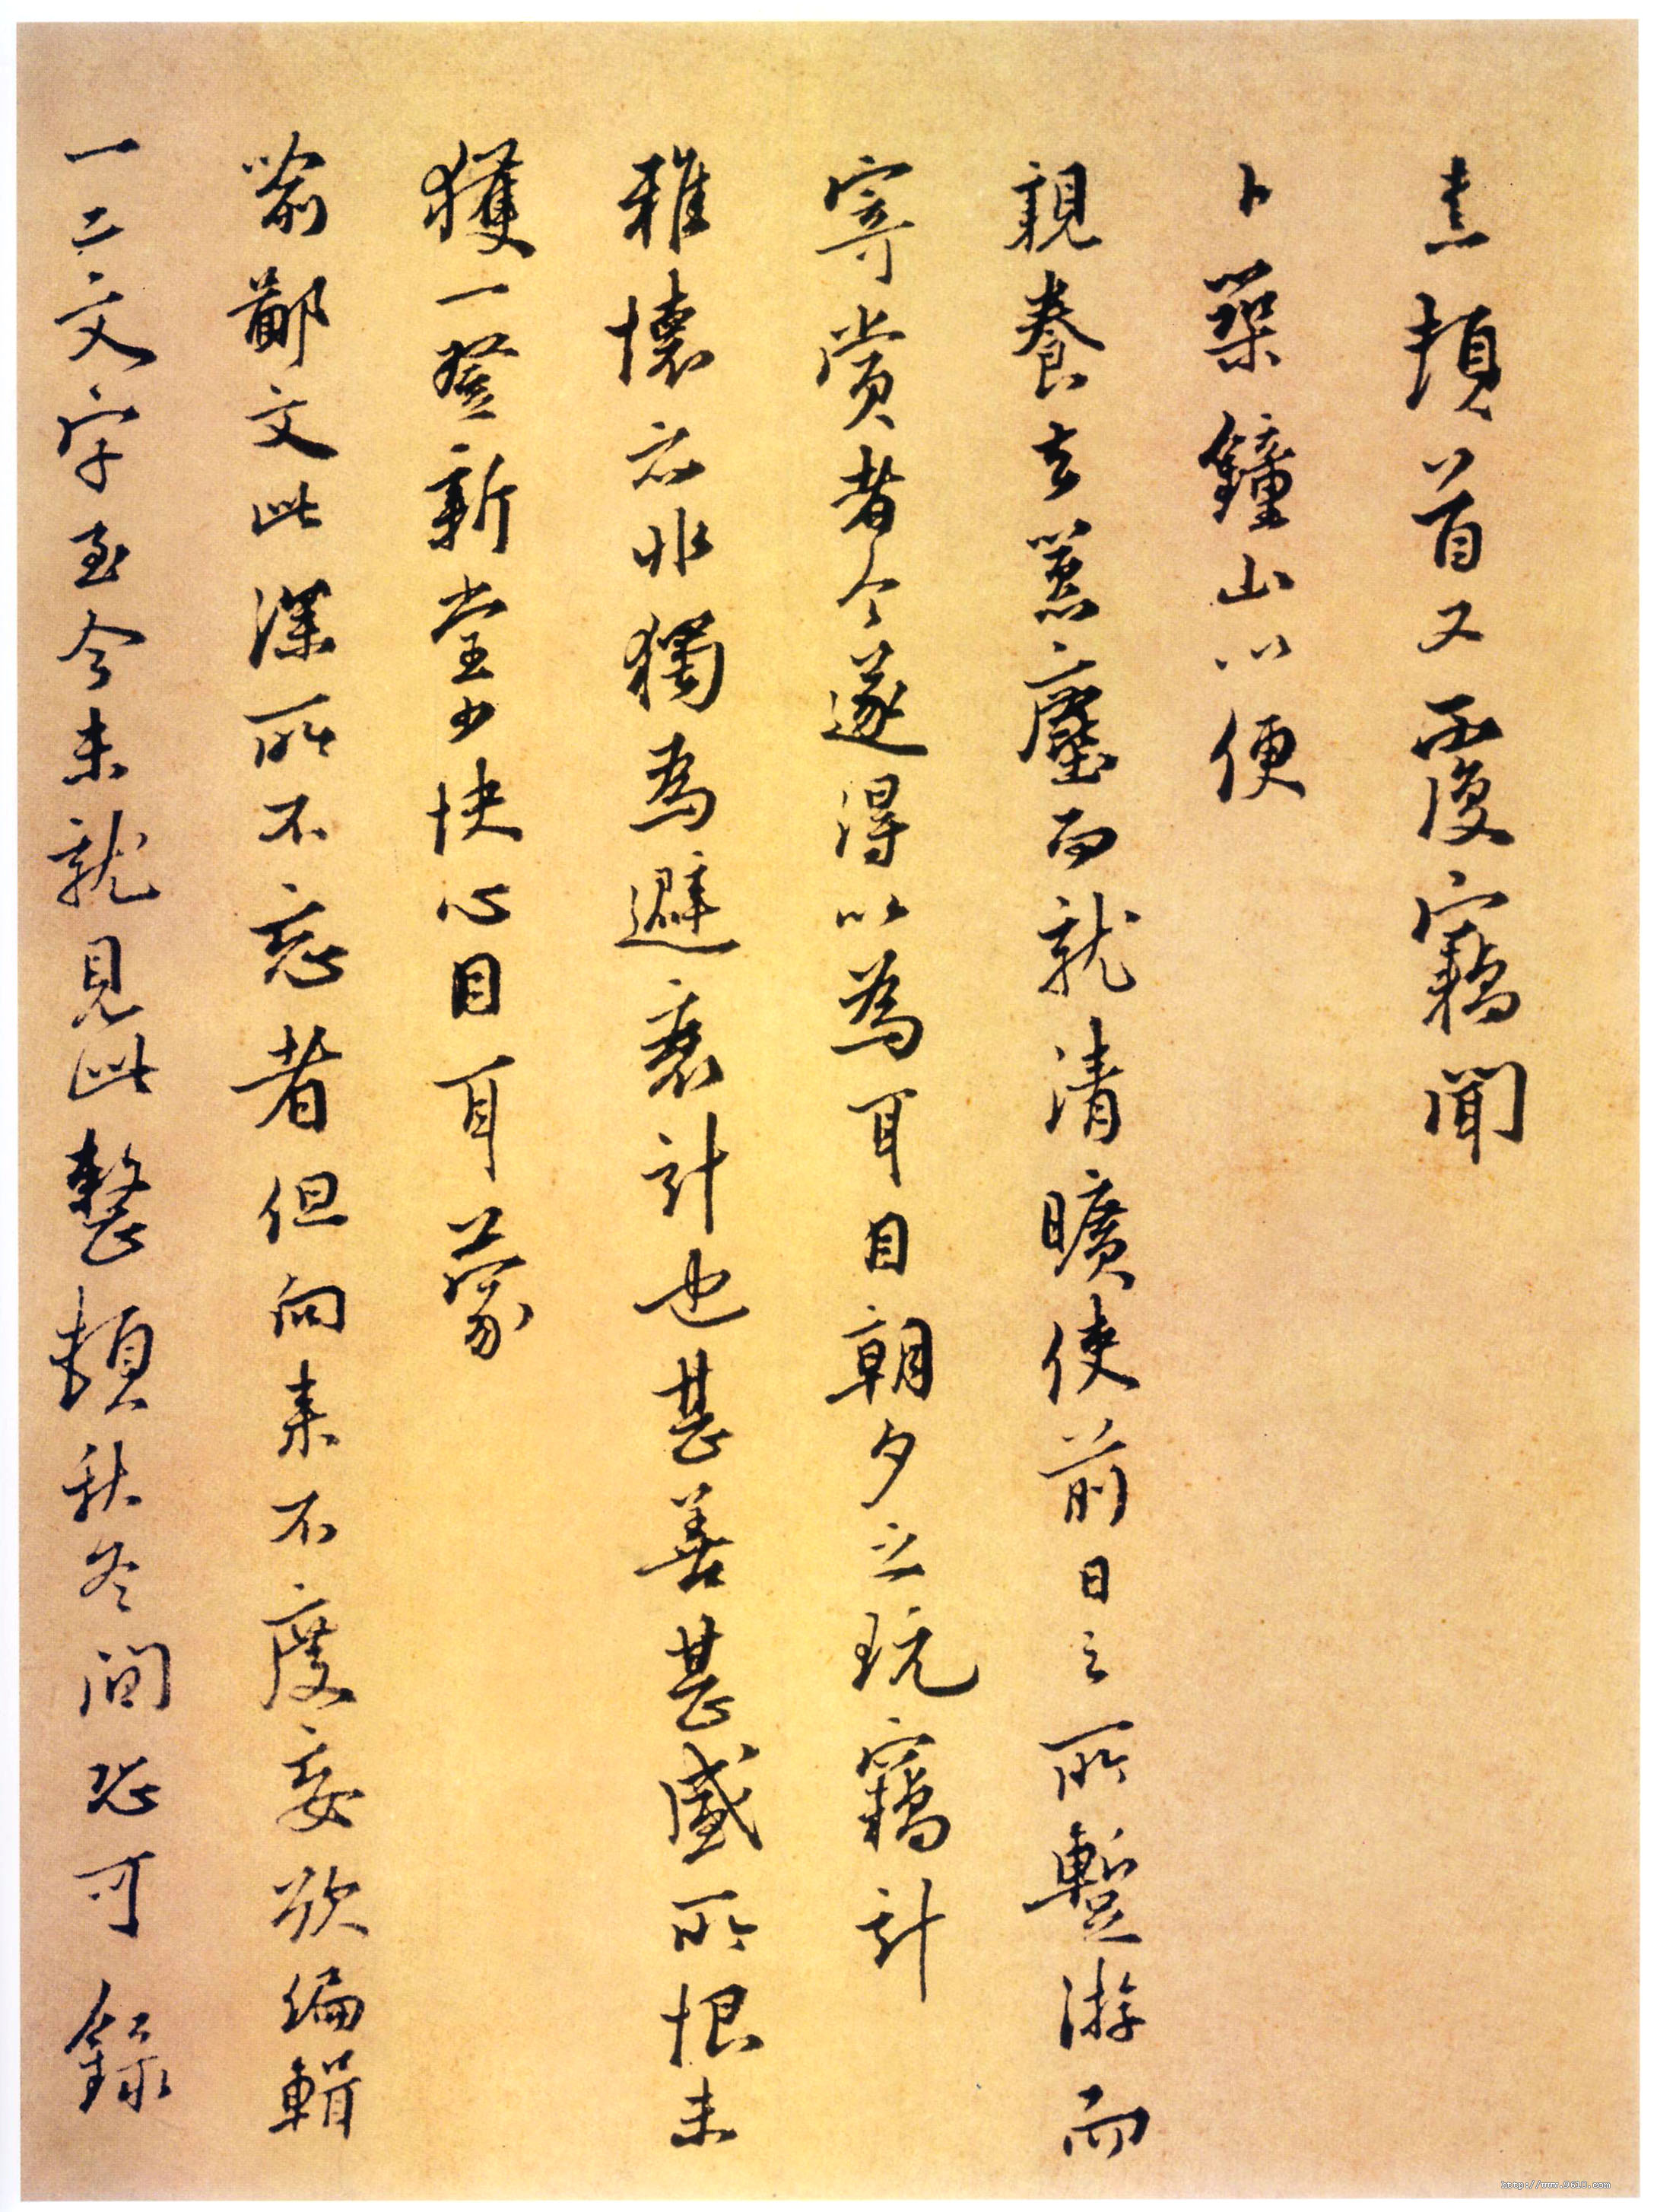 熹頓首又覆竊聞
卜築鐘山以便
親養去囂塵而就清曠使前日之所暫游而
寄賞者今遂得以為耳目朝夕之玩竊計
雅懷亦非獨為避衰計也甚善甚盛所恨未
獲一登新堂少快心目耳蒙
喻鄙文此深所不忘者但向來不度妄欲編輯
一二文字至今未就見此整頓秋冬間恐可錄
http://www.9610.com